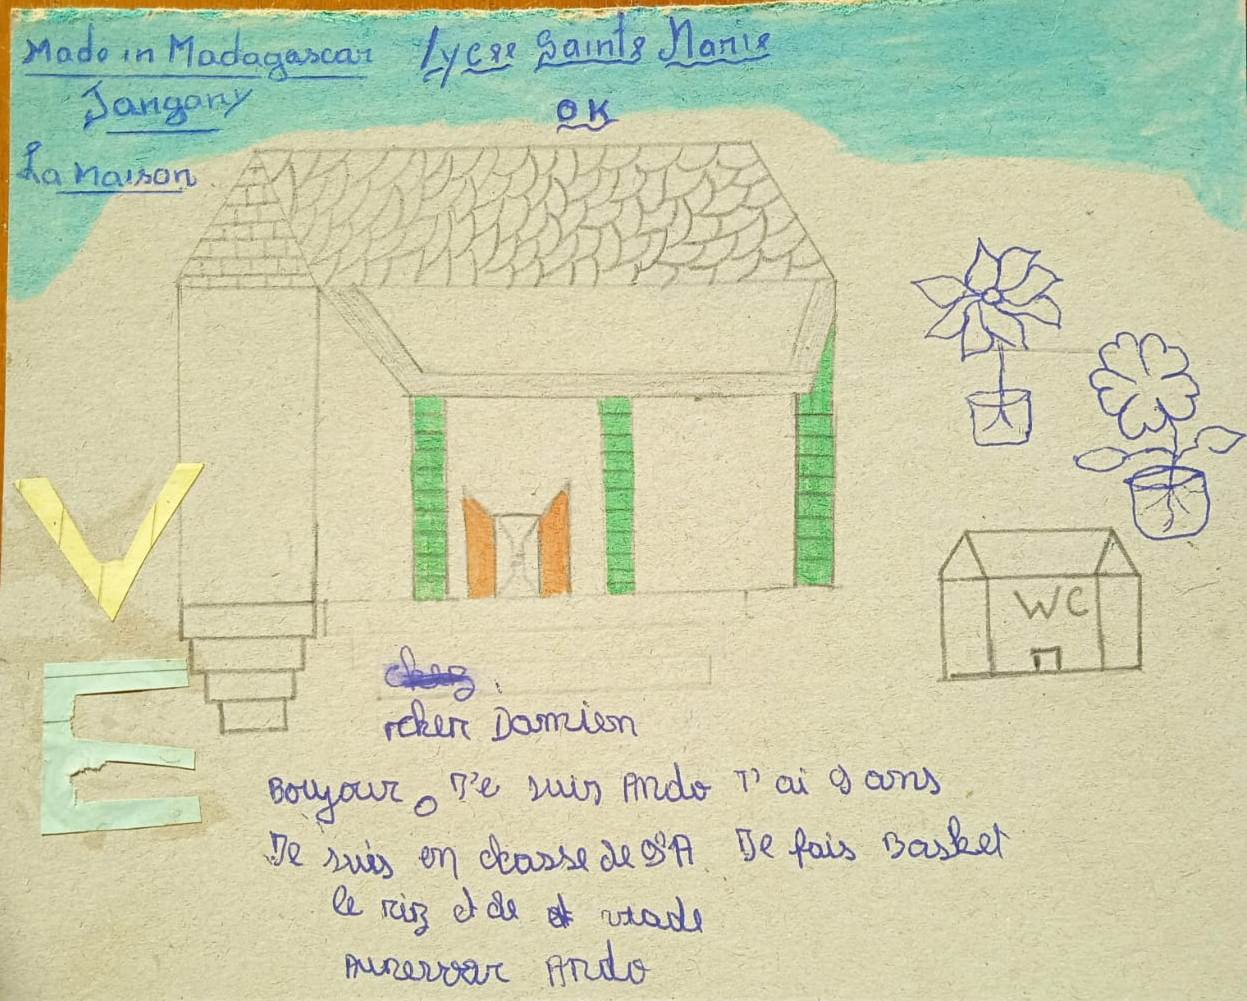 Made in Madagascar
Jangany
La maison
Lycee Sainte Marie
OK
V
E
WC
rcher Damien
Boujour, J'e suis Ando J'ai 9 ans
Je suis en classe de 9èA Je fais Basket
le riz et de viade
Aurevoar Ando